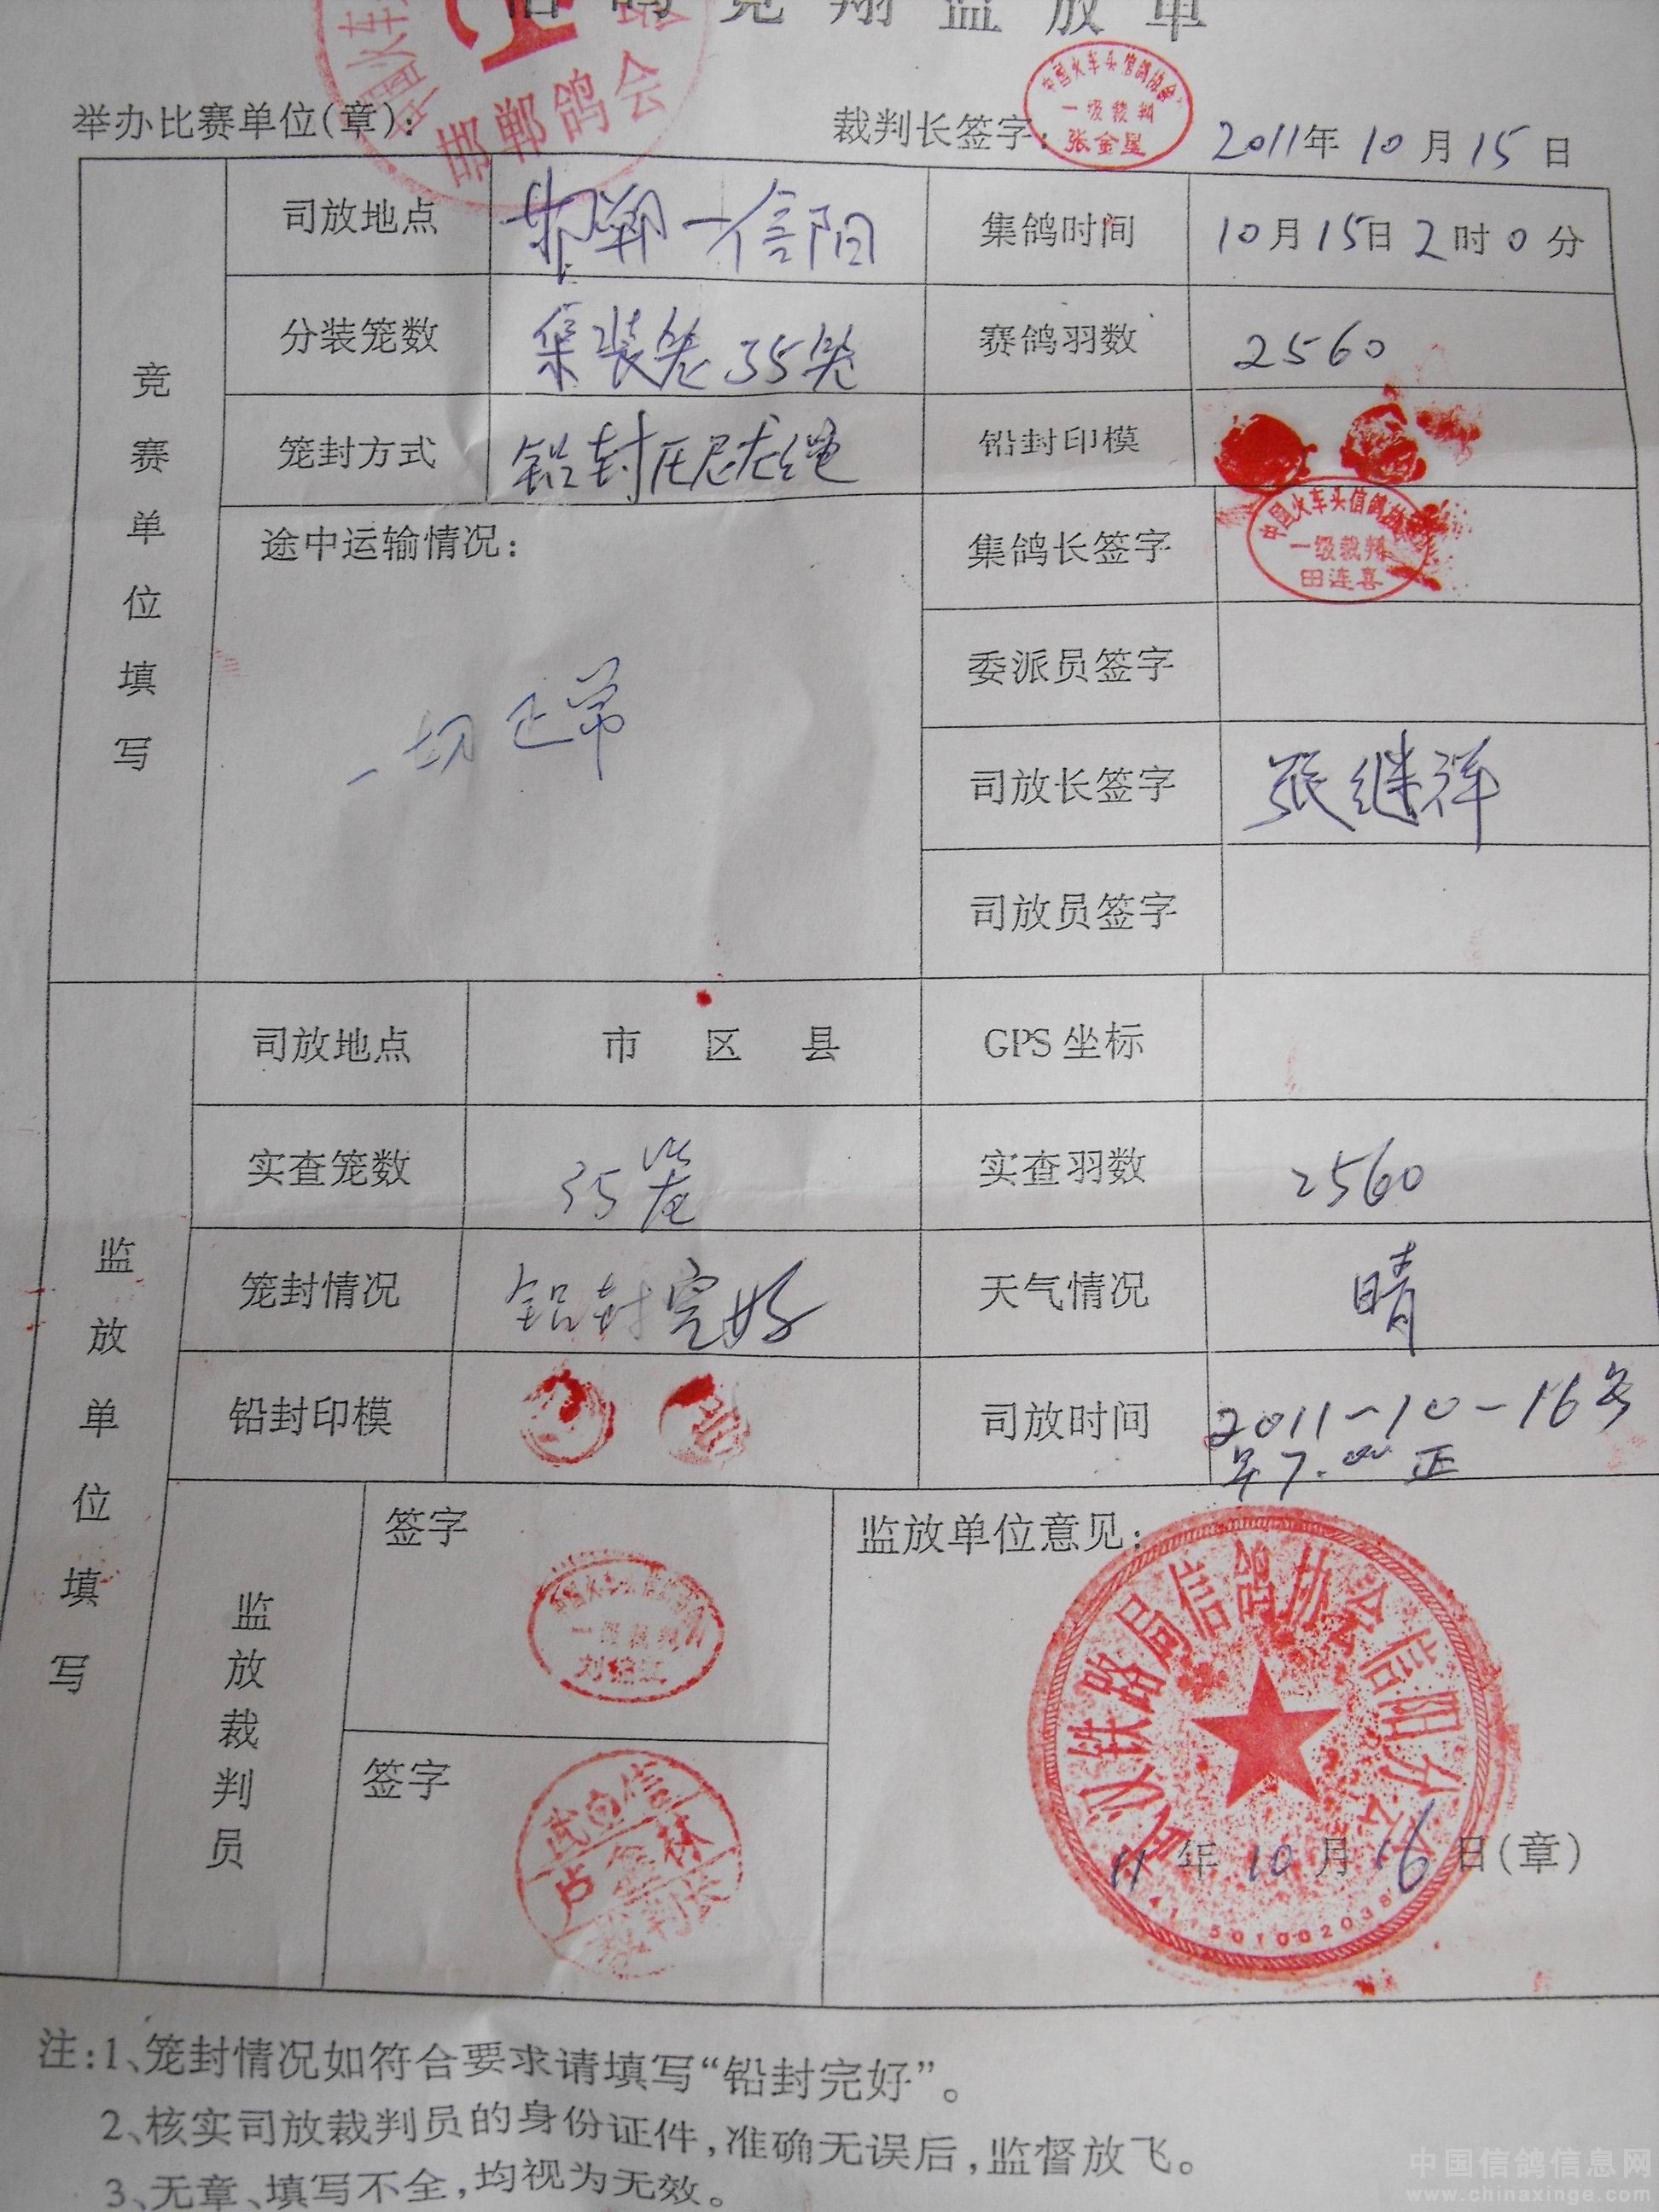 信鸽竞翔监放单
举办比赛单位(章): 邯郸鸽会 裁判长签字: 一级裁判 张金星 2011年10月15日
竞赛单位填写
司放地点 邯郸—信阳 集鸽时间 10月15日2时0分
分装笼数 集装笼35笼 赛鸽羽数 2560
笼封方式 铅封压尼龙绳 铅封印模
途中运输情况: 一切正常
集鸽长签字 中国火车头信鸽协会 一级裁判 田连喜
委派员签字
司放长签字 张继祥
司放员签字
监放单位填写
司放地点 市 区 县 GPS 坐标
实查笼数 35笼 实查羽数 2560
笼封情况 铅封完好 天气情况 晴
铅封印模 司放时间 2011-10-16
7:00 正
监放裁判员
签字 一级裁判
签字
监放单位意见: 武汉铁路局信鸽协会信阳分会
11年10月16日(章)
注:1、笼封情况如符合要求请填写“铅封完好”。
2、核实司放裁判员的身份证件,准确无误后,监督放飞。
3、无章、填写不全,均视为无效。
中国信鸽信息网
www.chinaxinge.com